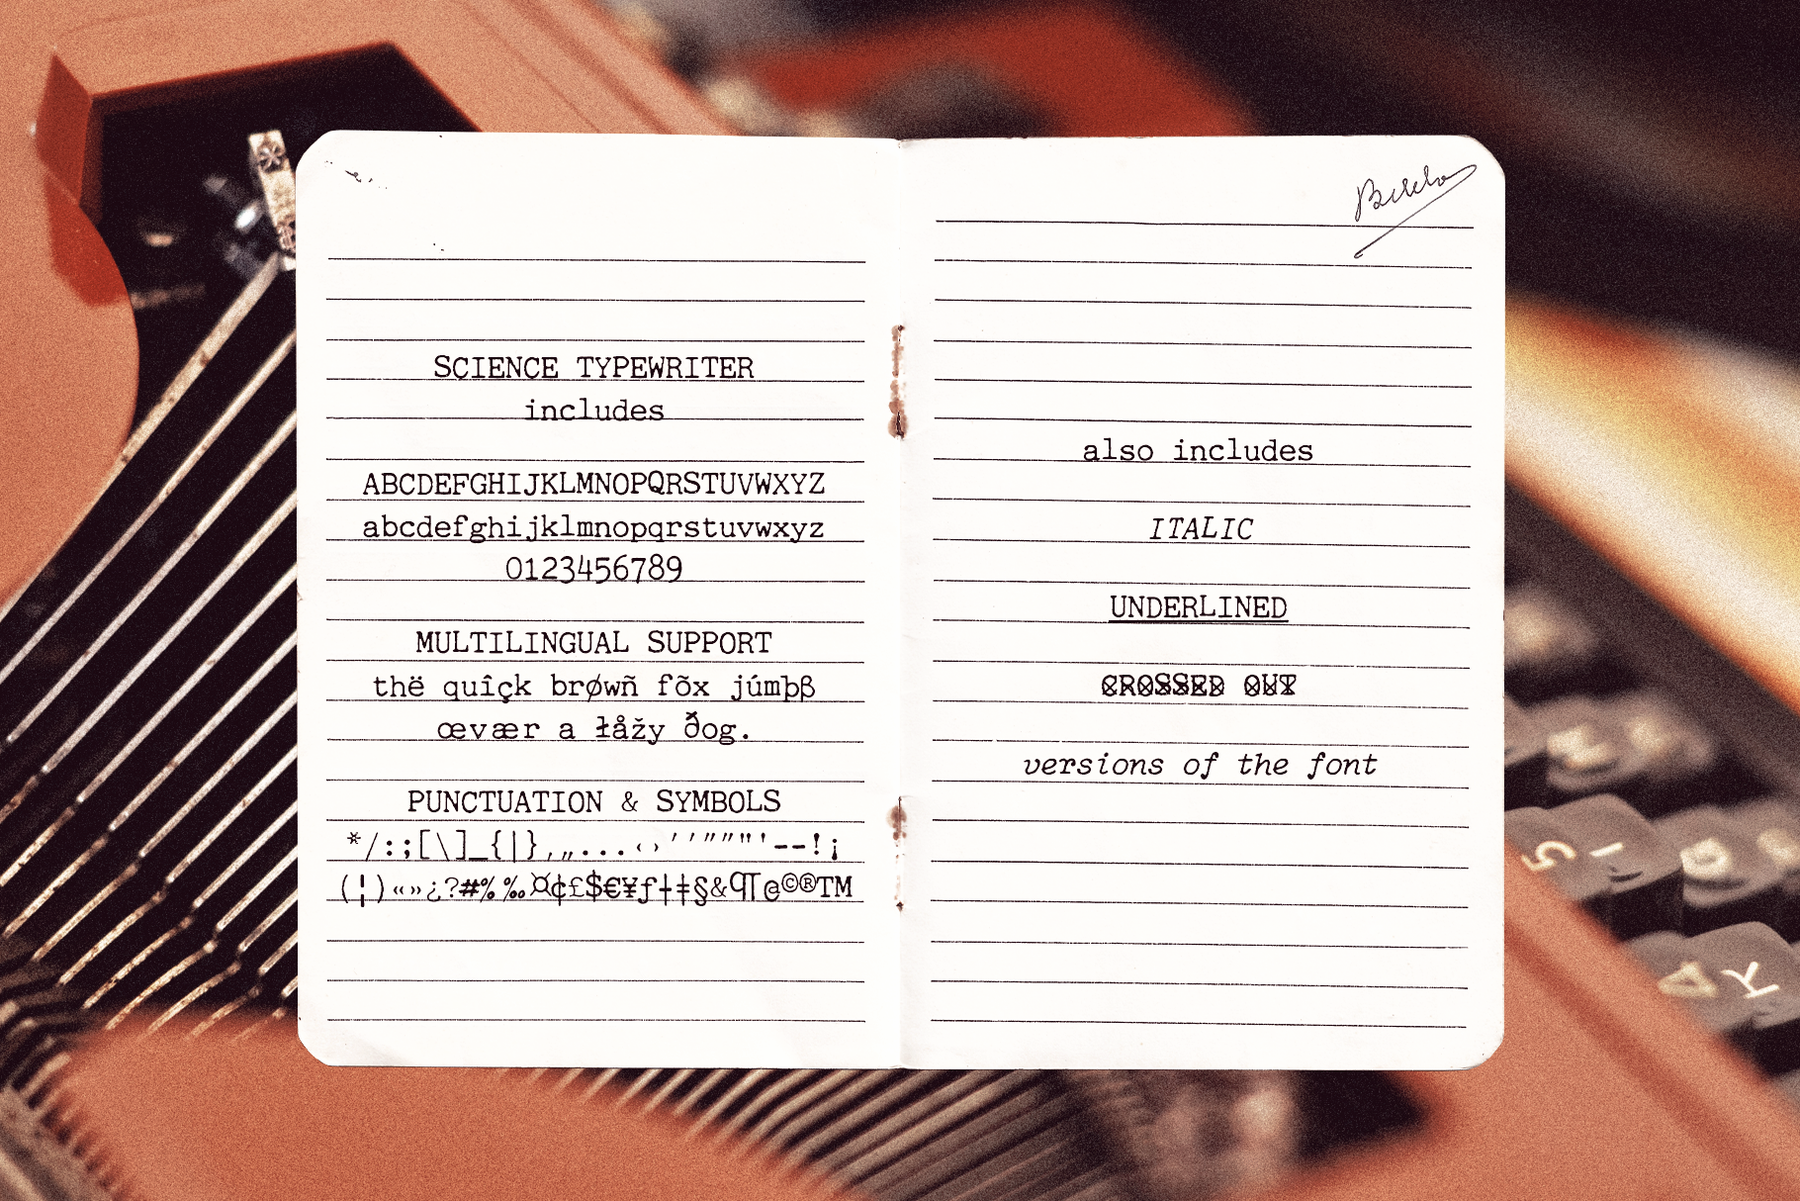 SCIENCE TYPEWRITER
includes
ABCDEFGHIJKLMNOPQRSTUVWXYZ
abcdefghijklmnopqrstuvwxyz
0123456789
MULTILINGUAL SUPPORT
thë quîçk brøwñ fõx júmþβ
œvær a łåžy ðog.
PUNCTUATION & SYMBOLS
*/:;[\]_{|}‚„...‹›‘’“”"'--!¡
(¦)«»¿?#%‰¤¢£$€¥ƒ†‡§&¶@©®TM
also includes
ITALIC
UNDERLINED
CROSSED OUT
versions of the font
5
K